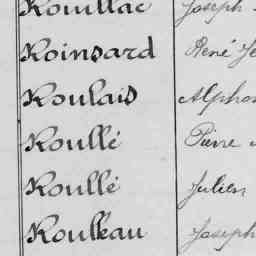 Rouillac Joseph
Roinsard René
Roulais
Roullé Pierre
Roullé Julien
Roulleau Joseph